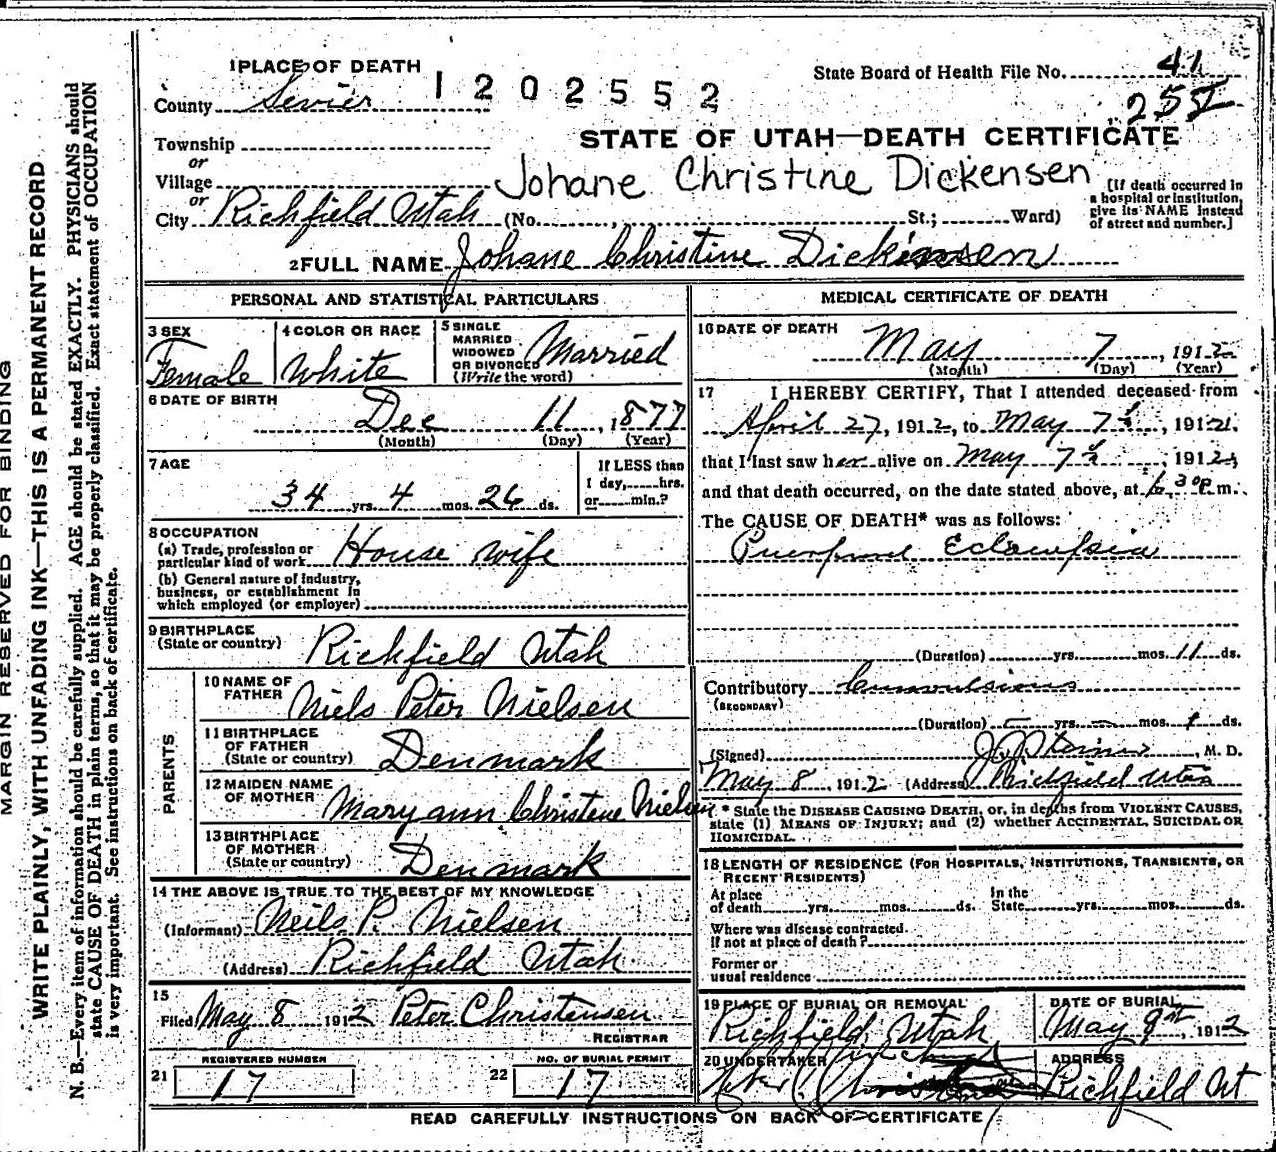 1 PLACE OF DEATH
County Sevier
1202552
State Board of Health File No. 41
255
Township
or
Village
or
City Richfield Utah (No. St.; Ward)
STATE OF UTAH—DEATH CERTIFICATE
Johane Christine Dickensen
[If death occurred in a hospital or institution, give its NAME instead of street and number.]
2 FULL NAME Johane Christine Dickinsen
PERSONAL AND STATISTICAL PARTICULARS
3 SEX Female
4 COLOR OR RACE White
5 SINGLE MARRIED WIDOWED OR DIVORCED (Write the word) Married
6 DATE OF BIRTH
Dec 11, 1877
(Month) (Day) (Year)
7 AGE
34 yrs. 4 mos. 26 ds.
If LESS than 1 day, hrs. or min.?
8 OCCUPATION
(a) Trade, profession or particular kind of work House wife
(b) General nature of industry, business, or establishment in which employed (or employer)
9 BIRTHPLACE
(State or country) Richfield Utah
PARENTS
10 NAME OF FATHER Niels Peter Nielsen
11 BIRTHPLACE OF FATHER (State or country) Denmark
12 MAIDEN NAME OF MOTHER Mary ann Christene Nielsen
13 BIRTHPLACE OF MOTHER (State or country) Denmark
14 THE ABOVE IS TRUE TO THE BEST OF MY KNOWLEDGE
(Informant) Neils P. Nielsen
(Address) Richfield Utah
15
Filed May 8 1912 Peter Christensen
REGISTRAR
REGISTERED NUMBER
21 17
NO. OF BURIAL PERMIT
22 17
MEDICAL CERTIFICATE OF DEATH
16 DATE OF DEATH
May 7, 1912
(Month) (Day) (Year)
17 I HEREBY CERTIFY, That I attended deceased from
April 27, 1912, to May 7, 1912,
that I last saw her alive on May 7, 1912,
and that death occurred, on the date stated above, at 6 30 p.m.
The CAUSE OF DEATH* was as follows:
Puerperal Eclampsia
(Duration) yrs. mos. 11 ds.
Contributory Convulsions
(SECONDARY)
(Duration) – yrs. – mos. 1 ds.
(Signed) M. D.
May 8, 1912 (Address) Richfield Utah
* State the DISEASE CAUSING DEATH, or, in deaths from VIOLENT CAUSES,
state (1) MEANS OF INJURY; and (2) whether ACCIDENTAL, SUICIDAL OR
HOMICIDAL.
18 LENGTH OF RESIDENCE (FOR HOSPITALS, INSTITUTIONS, TRANSIENTS, OR
RECENT RESIDENTS)
At place of death yrs. mos. ds.
In the State yrs. mos. ds.
Where was disease contracted
if not at place of death?
Former or
usual residence
19 PLACE OF BURIAL OR REMOVAL
Richfield, Utah
DATE OF BURIAL
May 9th, 1912
20 UNDERTAKER
ADDRESS
Richfield Ut
READ CAREFULLY INSTRUCTIONS ON BACK OF CERTIFICATE
MARGIN RESERVED FOR BINDING
WRITE PLAINLY, WITH UNFADING INK—THIS IS A PERMANENT RECORD
N. B.—Every item of information should be carefully supplied. AGE should be stated EXACTLY. PHYSICIANS should
state CAUSE OF DEATH in plain terms, so that it may be properly classified. Exact statement of OCCUPATION
is very important. See instructions on back of certificate.